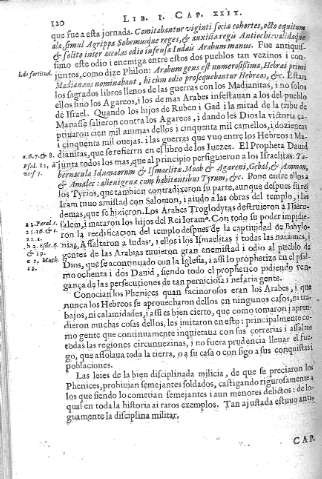 120 LIB. I. CAP. XXII.
que fue a esta jornada. Comitabantur viginti socia cohortes, octo equitum
alæ, simul Agrippa Sohemusque reges, & auxilia regis Antiochi: validaque
& solito inter accolas odio infensa Iudæis Arabum manus. Fue antiquis-
simo este odio i enemiga entre ellos dos pueblos tan vezinos i con-
juntos, como dize Philon: Arabum gens est numerosissima, Hebræi primi
Madianeos nominabant, hi cum odio prosequebantur Hebræos, &c. Estan
los sagrados libros llenos de las guerras con los Madianitas, i no solos
ellos sino los Agareos, i los demas Arabes infestauan a los del pueblo
de Israel. Quando los hijos de Ruben i Gad i la mitad de la tribu de
Manasse salieron contra los Agareos, i dando les Dios la victoria ca-
ptiuaron cien mil animas dellos i cinquenta mil camellos, i dozientas
i cinquenta mil ovejas. i las guerras que vuo entre los Hebreos i Ma-
dianitas, que se refieren en el libro de los Iuezes. El Propheta David
junta todos los mas, que al principio persiguieron a los Israelitas. Ta-
bernacula Idumæorum & Ismaelitæ. Moab & Agareni, Gebal, & Ammon,
& Amalec: alienigenæ cum habitantibus Tyrum, &c. Pone entre ellos a
los Tyrios, que tambien contradixeron su parte, aunque despues su rei
Iram tuuo amistad con Salomon, i ayudo a las obras del templo, i las
demas, que se hizieron. Los Arabes Trogloditas destruieron a Hieru-
salem, i mataron los hijos del Rei Ioram. Con todo su poder impidie-
ron la reedificacion del templo despues de la captiuidad de Babylo-
nia. Assaltaron a Iudas, i ellos i los Ismaelitas i todas las naciones, i
gentes de las Arabias tuuieron gran enemistad i odio al pueblo de
Dios, que se acontinuado con la Iglesia, i assi lo prophetiza en el psal-
mo ochenta i dos David, siendo todo el prophetico pidiendo ven-
gança de las persecuciones de tan perniciosa i nefaria gente.
Conocian los Phenices quan facinorosos eran los Arabes, i que
nunca los Hebreos se aprouecharon dellos en ningunos casos, ni tra-
bajos, ni calamidades, i assi es bien cierto, que como tomaron i apren-
dieron muchas cosas dellos, les imitaron en esto: principalmente co-
mo gente que continuamente inquietaua con sus correrias i assaltos
todas las regiones circunuezinas, i no fuera prudencia llenar el fue-
go, que assolaua toda la tierra, o a su casa o consigo a sus conquistas i
poblaciones.
Las leies de la bien disciplinada milicia, de que se preciaron los
Phenices, prohibian semejantes soldados, castigando rigurosamente a
los que siendo lo cometian semejantes i aun menores delictos: de lo-
qual en toda la historia ai raros exemplos. Tan ajustada estuuo anti-
guamente la disciplina militar.
CAP.